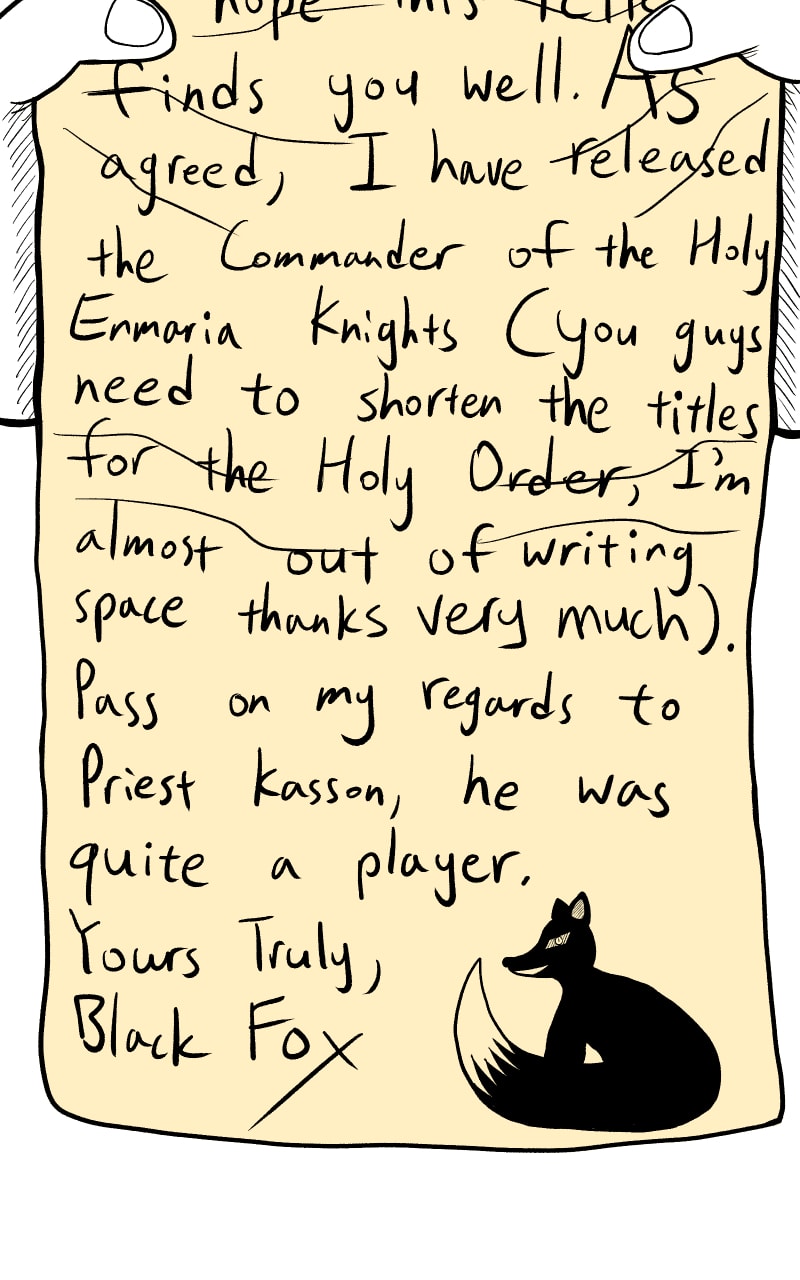 hope this
finds you well. As
agreed, I have released
the Commander of the Holy
Enmaria Knights (you guys
need to shorten the titles
for the Holy Order, I'm
almost out of writing
space thanks very much).
Pass on my regards to
Priest Kasson, he was
quite a player.
Yours Truly,
Black Fox